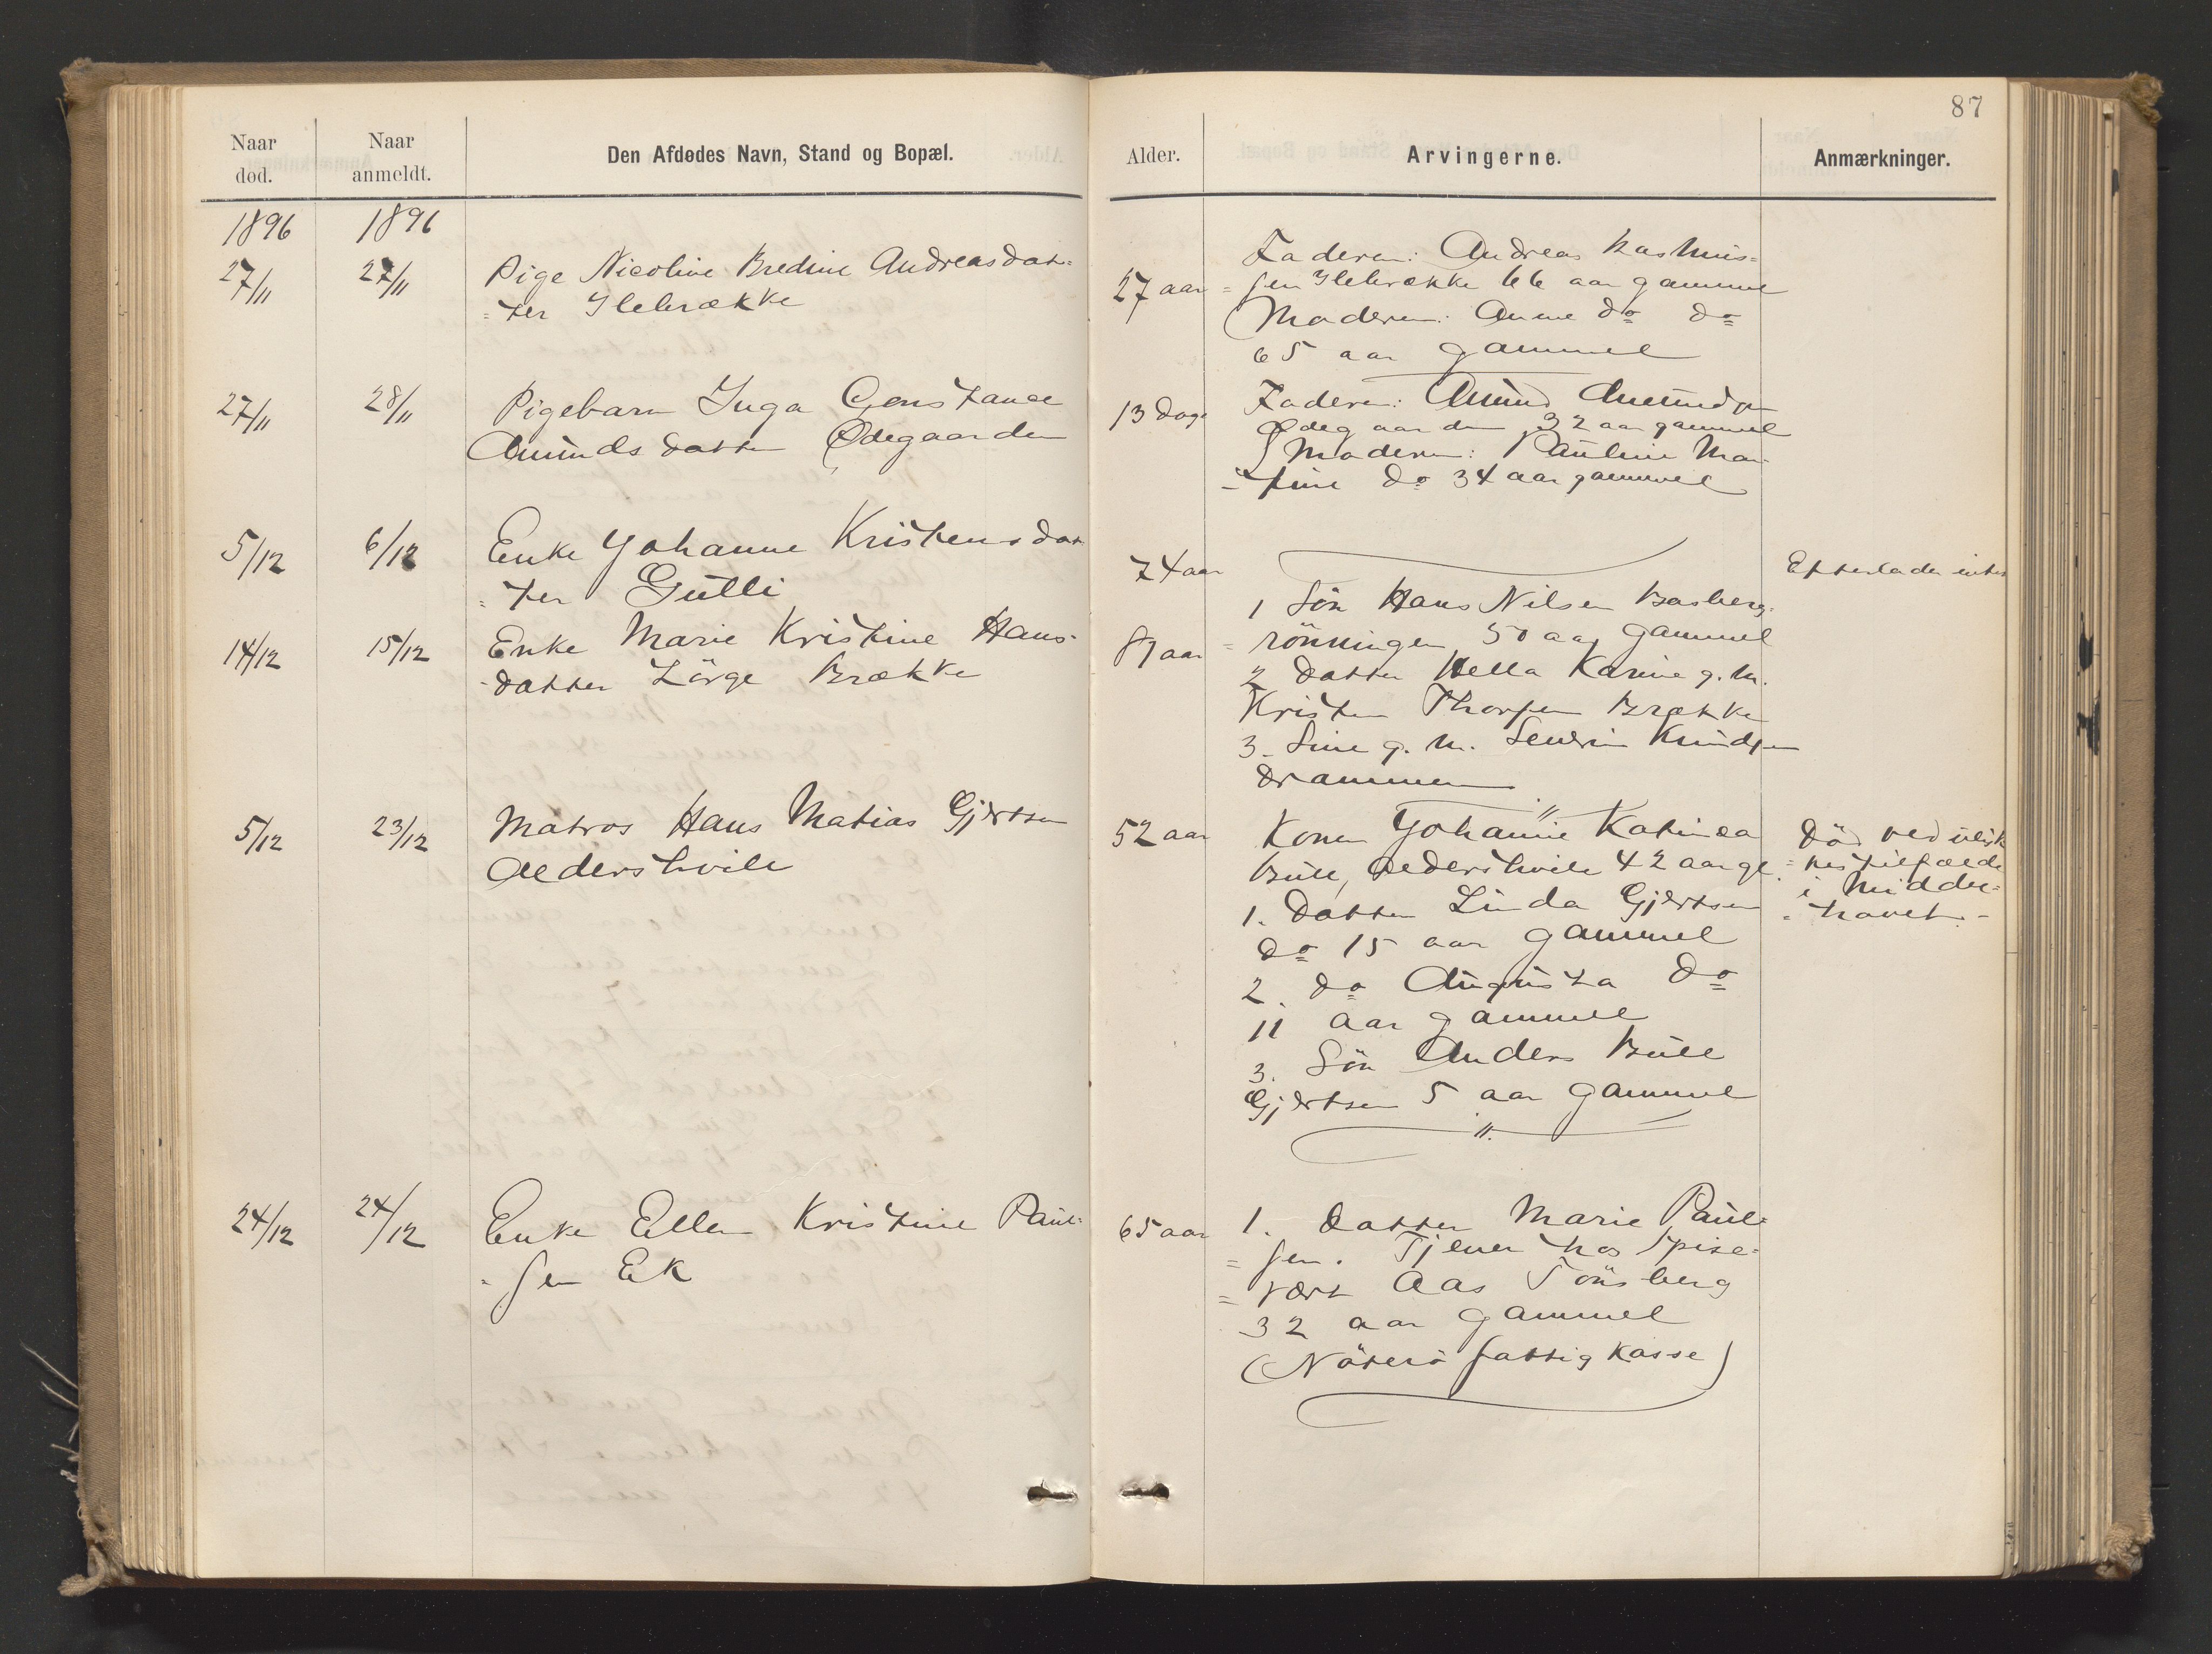 87
Naar død.
Naar anmeldt.
Den Afdødes Navn, Stand og Bopæl.
Alder.
Arvingerne.
Anmærkninger.
1896
1896
27/11
27/11
Pige Nicoline Bredine Andreasdat=
=ter Ilebrække
27 aar
Faderen: Andreas Rasmus=
=sen Ilebrække 66 aar gammel
Moderen: Anne do do
65 aar gammel
27/11
28/11
Pigebarn Inga Constance
Amunds datter Ødegaarden
13 dage
Faderen: Amund Amundsen
Ødegaarden 32 aar gammel
Moderen: Pauline Mar=
=tine do 34 aar gammel
5/12
6/12
Enke Johanne Kristensdat
=ter Gulli
74 aar
Efterlader intet
14/12
15/12
Enke Marie Kristine Hans-
-datter Lörge Brække
81 aar
1 Sön Hans Nilsen Basberg=
=rönningen 50 aar gammel
2 Datter Hella Karine g. m.
Kristen Thorsen Brække
3. Sine g. m. Severin Knudsen
Drammen
5/12
23/12
Matros Hans Matias Gjertsen
Aldershvile
52 aar
Konen Johanne Katinca
Bull, Aldershvile 42 aar gl.
1. Datter Linda Gjertsen
do 15 aar gammel
2. do Augusta do
11 aar gammel
3. Sön Anders Bull
Gjertsen 5 aar gammel
Död ved ulyk
=kestilfælde
i Middel=
=havet.-
24/12
24/12
Enke Ellen Kristine Paul=
-sen Ek
65 aar
1. Datter Marie Paul=
=sen. Tjener hos Spise=
=vært Aas Tönsberg
32 aar gammel
(Nöterö fattigkasse)